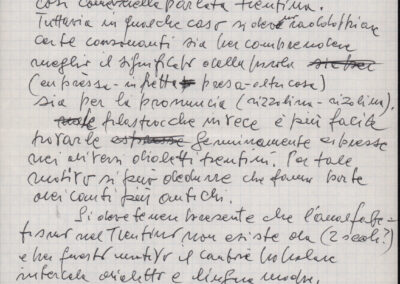 così come nella parlata trentina.
Tuttavia in qualche caso si deve raddoppiare
certe consonanti sia per comprendere
meglio il significato della parola
(en prèssa - in fretta presa - altra cosa)
sia per la pronuncia (rizzolina - rizolina).
filastrocche invece è più facile
trovarle genuinamente espresse
nei diversi dialetti trentini. Per tale
motivo si può dedurre che fanno parte
dei canti più antichi.
Si deve tenere presente che l'analfabe-
tismo nel Trentino non esiste da (2 secoli?)
e per questo motivo il cantore popolare
intercala dialetto e lingua madre.